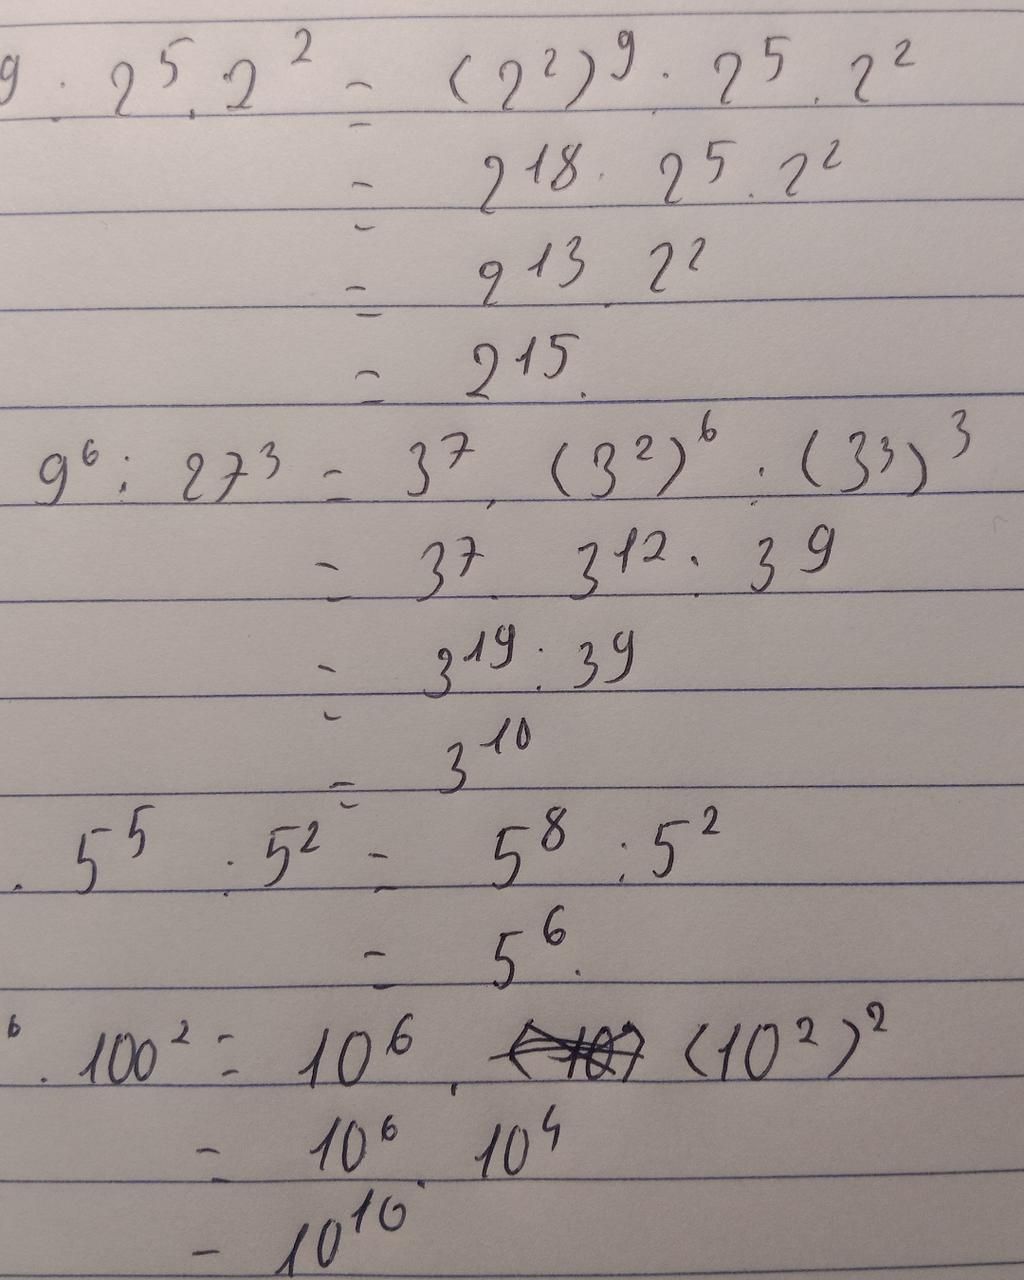 9 : 2⁵ . 2² = (2²)⁹ : 2⁵ . 2²
= 2¹⁸ : 2⁵ . 2²
= 2¹³ . 2²
= 2¹⁵.
9⁶ : 27³ = 3⁷ . (3²)⁶ : (3³)³
= 3⁷ . 3¹² : 3⁹
= 3¹⁹ : 3⁹
= 3¹⁰
. 5⁵ : 5² = 5⁸ : 5²
= 5⁶.
⁶ . 100² = 10⁶ . (10²)²
= 10⁶ . 10⁴
= 10¹⁰